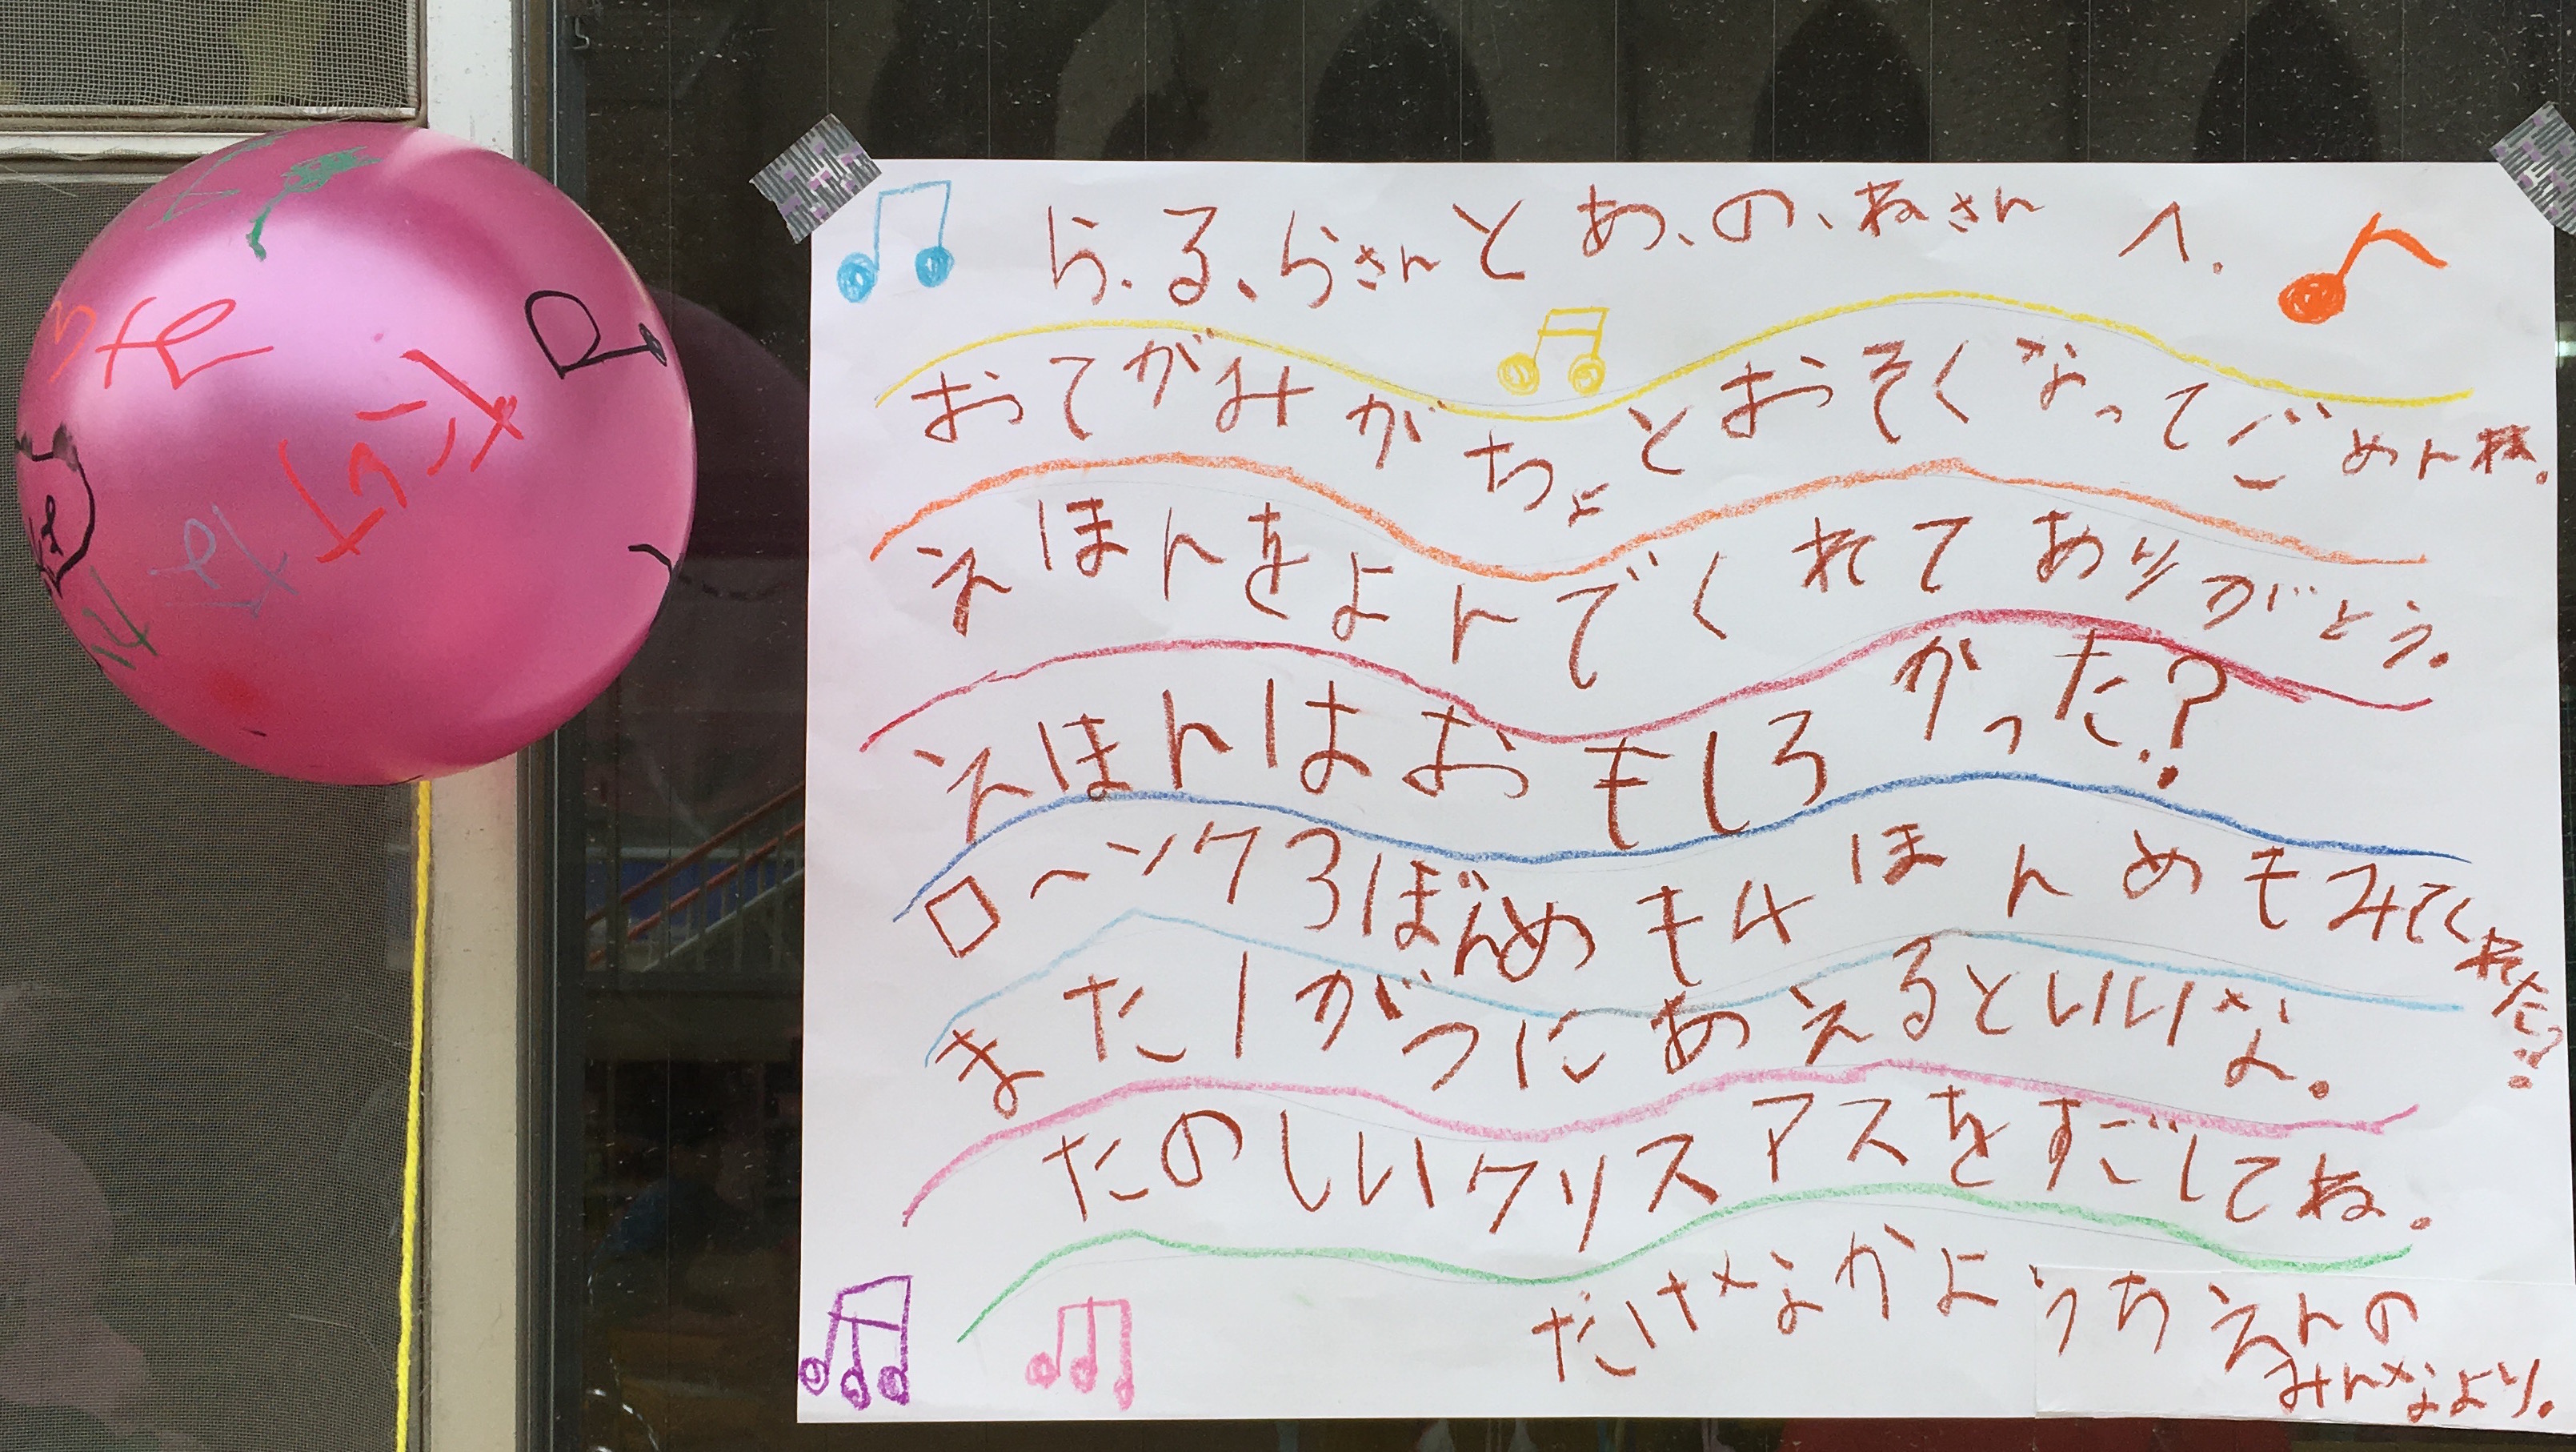 ら.る、らさんと あ、の、ねさん へ.
おてがみが ちょとおそくなってごめんね.
えほんをよんでくれてありがとう.
えほんはおもしろかった?
ローソク3ぼんめも4ほんめもみてくれた?
また1がつにあえるといいな.
たのしいクリスマスをすごしてね.
だけなかようちえんの
みんなより.